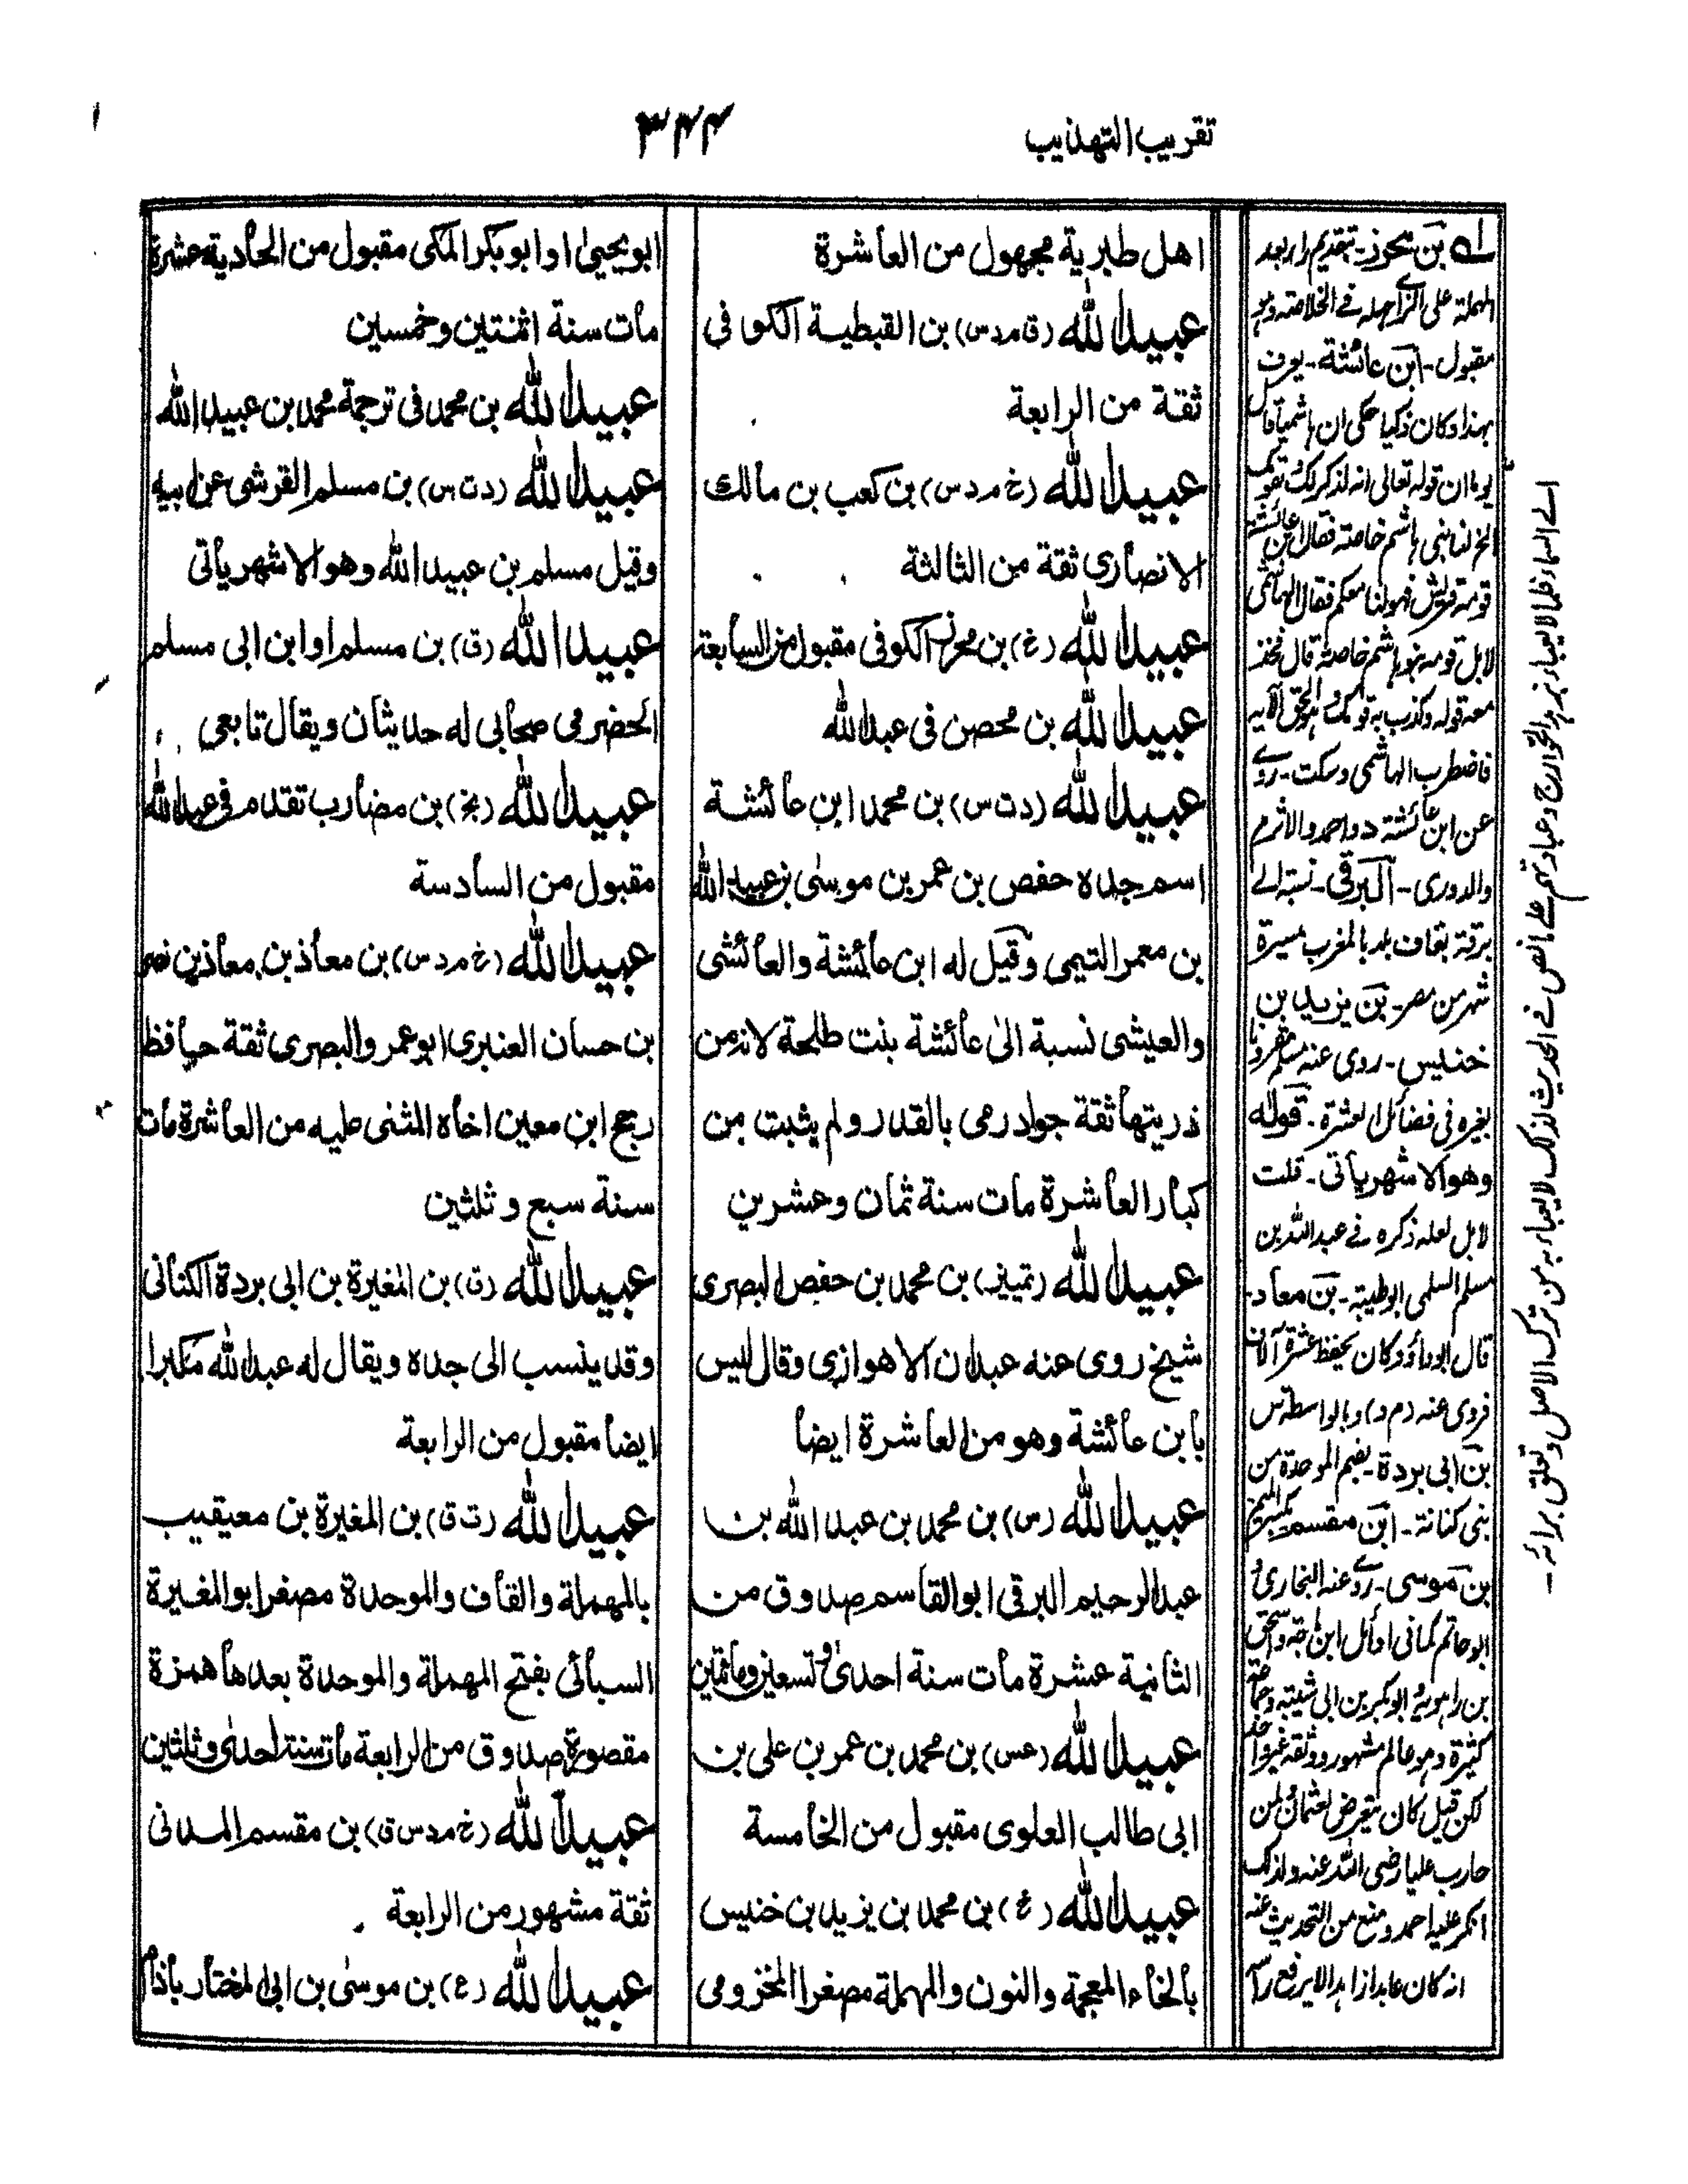 تقریب التهذیب
۳۴۴
اهل طبرية مجهول من العاشرة
عبيد الله (ق م د س) بن القبطية الكوفى
ثقة من الرابعة
عبيد الله (خ م د س) بن كعب بن مالك
الانصارى ثقة من الثالثة
عبيد الله (خ) بن محرز الكوفى مقبول من السابعة
عبيد الله بن محصن فى عبد الله
عبيد الله (د ت س) بن محمد ابن عائشة
اسم جده حفص بن عمر بن موسى بن عبيد الله
بن معمر التيمى وقيل له ابن عائشة والعائشى
والعيشى نسبة الى عائشة بنت طلحة لانه من
ذريتها ثقة جواد رمى بالقدر ولم يثبت من
كبار العاشرة مات سنة ثمان وعشرين
عبيد الله (تمييز) بن محمد بن حفص البصرى
شيخ روى عنه عبدان الاهوازى وقال ليس
بابن عائشة وهو من العاشرة ايضا
عبيد الله (س) بن محمد بن عبد الله بن
عبد الرحيم البرقى ابو القاسم صدوق من
الثانية عشرة مات سنة احدى وتسعين ومائتين
عبيد الله (عس) بن محمد بن عمر بن على بن
ابى طالب العلوى مقبول من الخامسة
عبيد الله (م) بن محمد بن يزيد بن خنيس
بالخاء المعجمة والنون والمهملة مصغرا المخزومى
ابو يحيى او ابو بكر المكى مقبول من الحادية عشرة
مات سنة اثنتين وخمسين
عبيد الله بن محمد فى ترجمة محمد بن عبيد الله
عبيد الله (د ت س) بن مسلم القرشى عن ابيه
وقيل مسلم بن عبيد الله وهو الاشهر يأتى
عبيد الله (ق) بن مسلم او ابن ابى مسلم
الحضرمى صحابى له حديثان ويقال تابعى
عبيد الله (بخ) بن مضارب تقدم فى عبد الله
مقبول من السادسة
عبيد الله (خ م د س) بن معاذ بن معاذ بن نصر
بن حسان العنبرى ابو عمرو البصرى ثقة حافظ
رجح ابن معين اخاه المثنى عليه من العاشرة مات
سنة سبع وثلثين
عبيد الله (ق) بن المغيرة بن ابى بردة الكنانى
وقد ينسب الى جده ويقال له عبد الله مكبرا
ايضا مقبول من الرابعة
عبيد الله (ت ق) بن المغيرة بن معيقيب
بالمهملة والقاف والموحدة مصغرا ابو المغيرة
السبائى بفتح المهملة والموحدة بعدها همزة
مقصورة صدوق من الرابعة مات سنة احدى وثلثين
عبيد الله (خ م د س ق) بن مقسم المدنى
ثقة مشهور من الرابعة
عبيد الله (ع) بن موسى بن ابى المختار باذام
له بن محرز - بتقديم راء بعد
المهملة على الزاى جعله فى الخلاصة وهو
مقبول - ابن عائشة - يعرف
بهذا وكان ذكيا حكى ان هاشميا قال
يوما ان قوله تعالى انه لذكر لك ولقومك
الخ لنا بنى هاشم خاصة فقال ابن عائشة
قومه قريش فهو لنا معكم فقال الهاشمى
لا بل قومه بنو هاشم خاصة قال فخذ
معه قوله وكذب به قومك وهو الحق الآية
فاضطرب الهاشمى وسكت - روى
عن ابن عائشة د واحمد والاثرم
والدورى - البرقى - نسبة الى
برقة بقاف بلد بالمغرب مسيرة
شهر من مصر - بن يزيد بن
خنيس - روى عنه مسلم مقرونا
بغيره فى فضائل العشرة - قوله
وهو الاشهر يأتى - قلت
لا بل لعله ذكره فى عبد الله بن
مسلم السلمى ابو طيبة - بن معاذ -
قال ابو داؤد كان يحفظ عشرة آلاف
فروى عنه (م د) وبالواسطة س
بن ابى بردة - بضم الموحدة من
بنى كنانة - ابن مقسم بكسر الميم
بن موسى - روى عنه البخارى و
ابو حاتم كما فى اوائل ابن ماجة واسحق
بن راهويه وابو بكر بن ابى شيبة وجماعة
كثيرة وهو عالم مشهور ووثقه غير واحد
لكن قيل كان يتعرض لعثمان ولمن
حارب عليا رضى الله عنه ولذلك
انكر عليه احمد ومنع من التحديث عنه
انه كان عابدا زاهدا لا يرفع رأسه
الى السماء فلما لا يعباء بزهد الخوارج وعبادتهم على ما نص فى الحديث لذلك لا يعباء به من ترك الاصل وتعلق برائه -